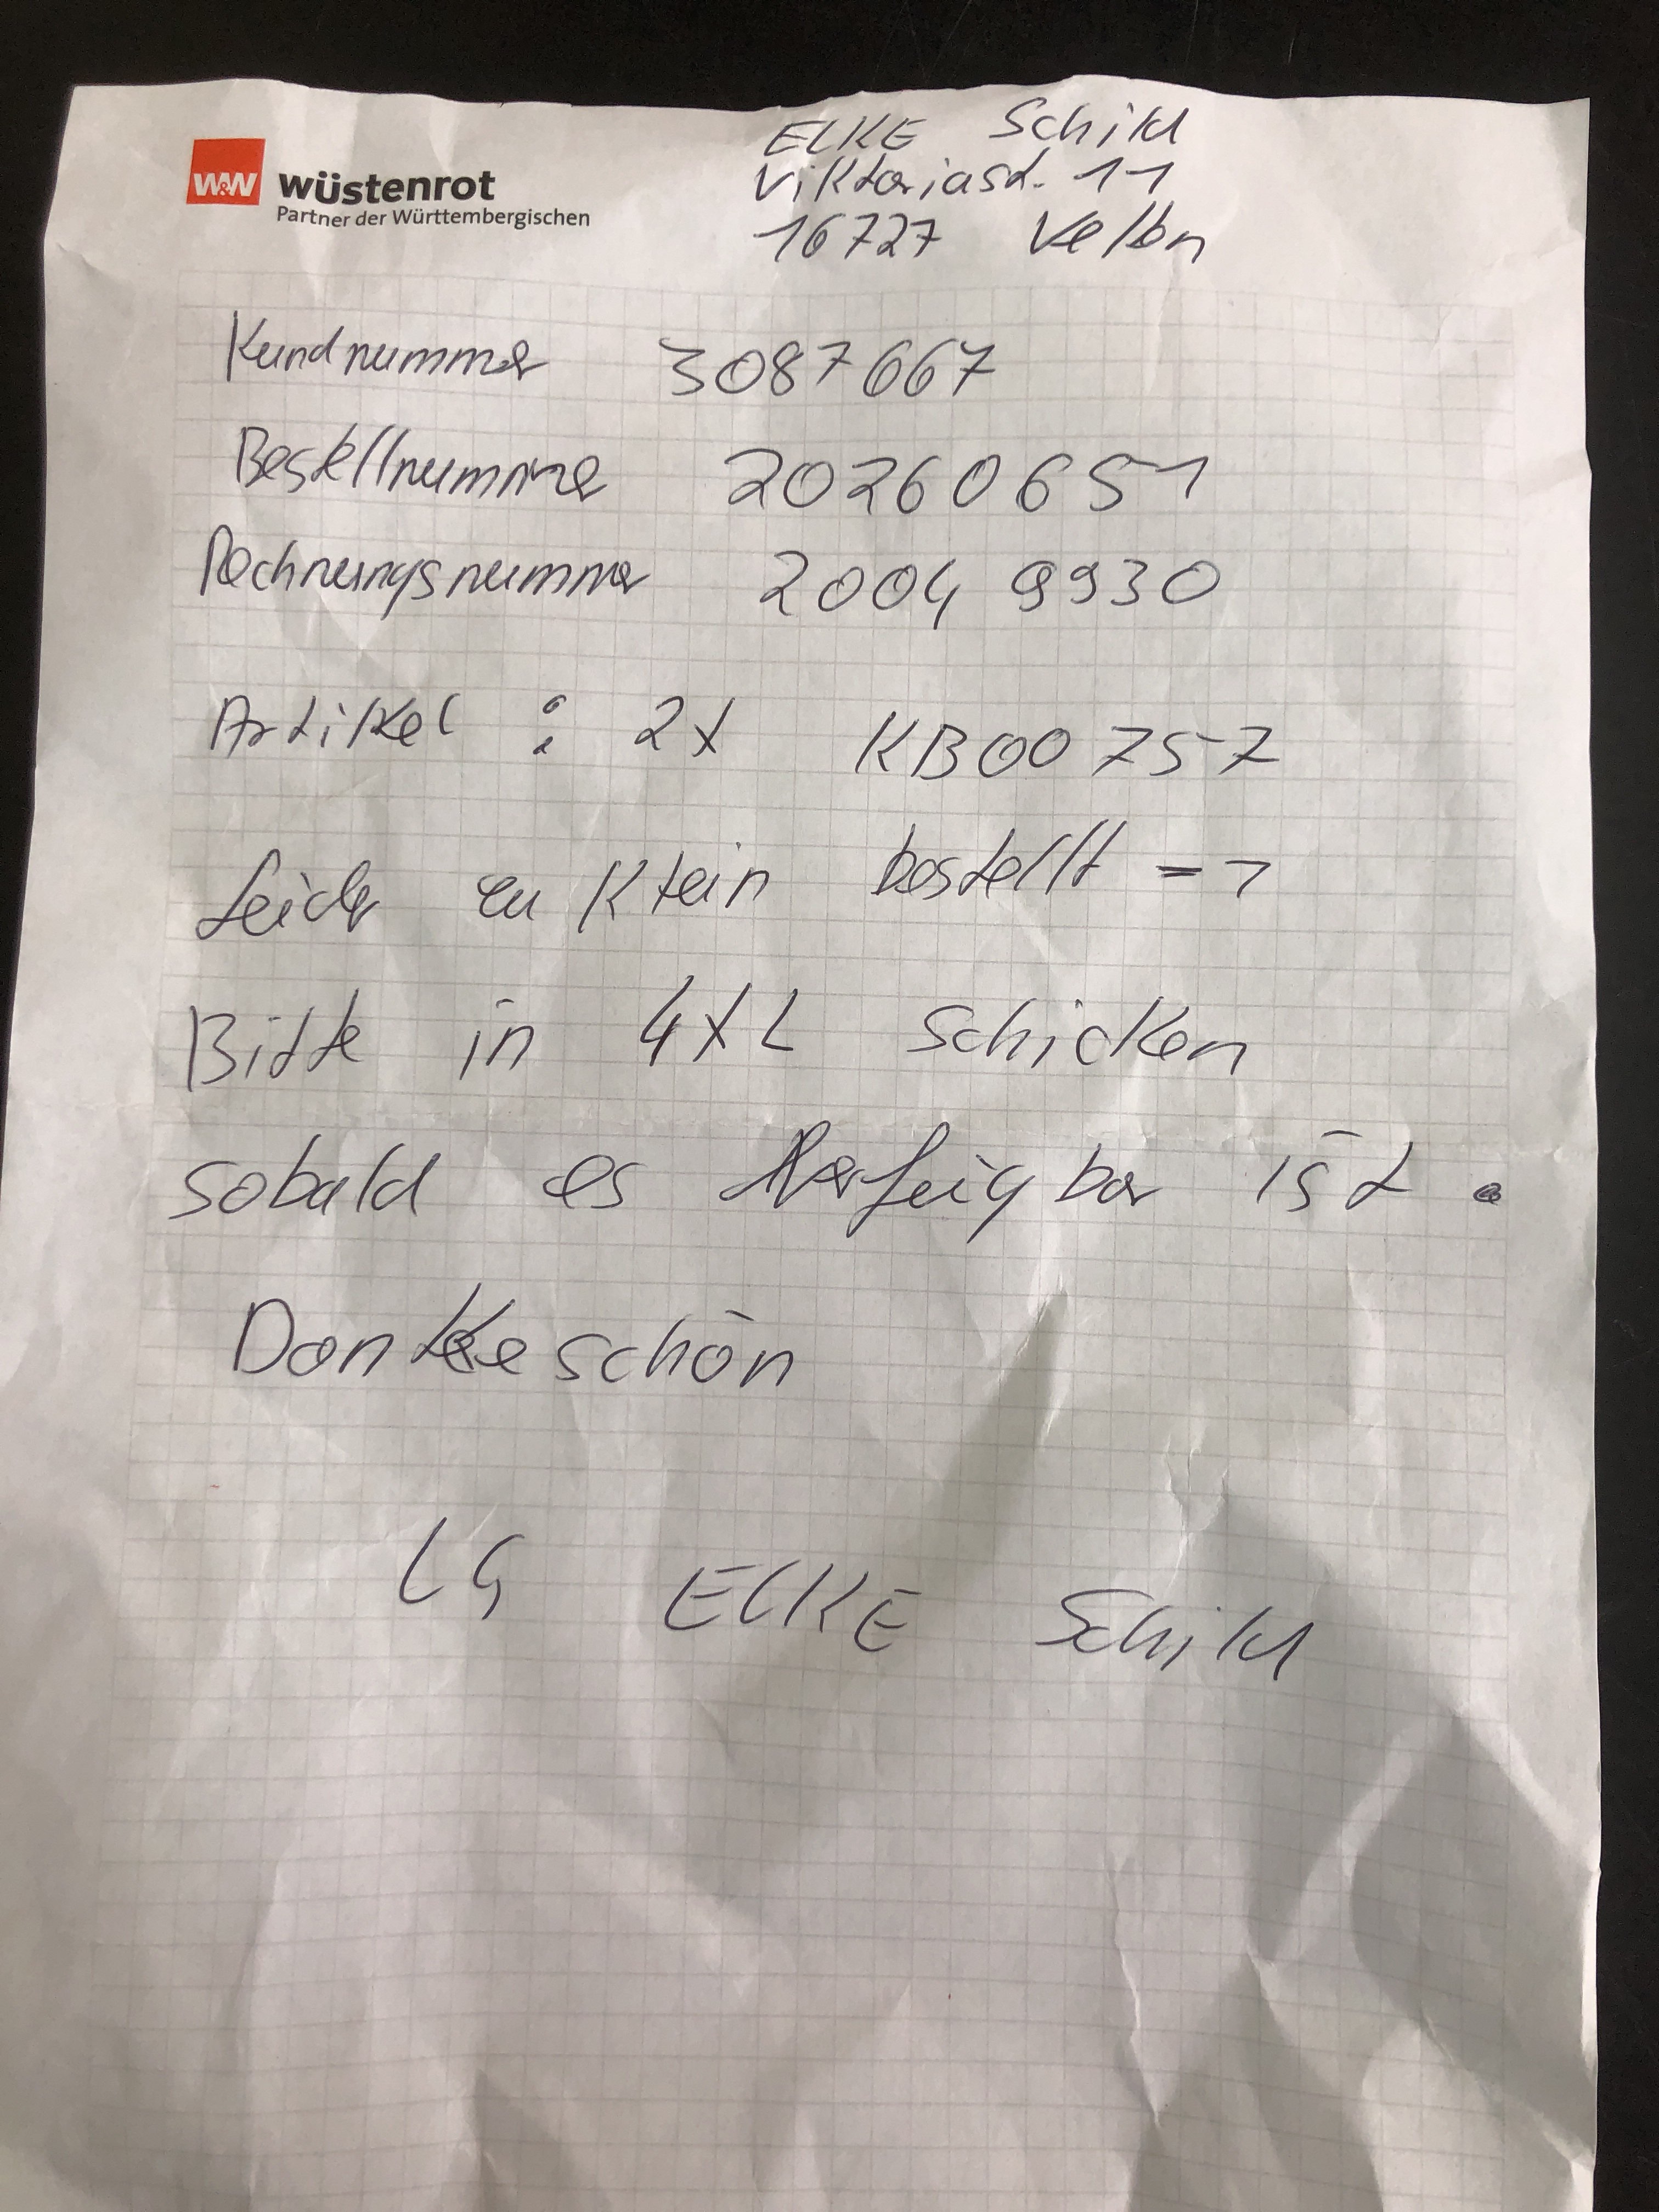 ELKE Schild
Viktoriast. 11
16727 Velten
W&W wüstenrot
Partner der Württembergischen
Kundnummer 3087667
Bestellnummer 20260651
Rechnungsnummer 20049930
Artikel : 2x KB00757
Leider zu Klein bestellt =>
Bitte in 4XL schicken
sobald es Verfügbar ist.
Dankeschön
LG ELKE Schild